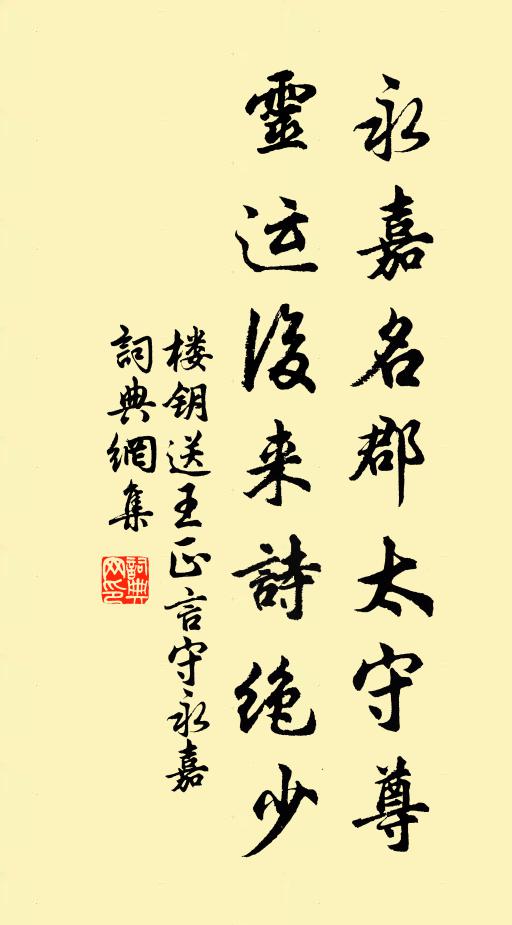 永嘉名郡太守尊
靈运後来詩绝少
楼钥送王正言守永嘉
詞典網集
詞典网印